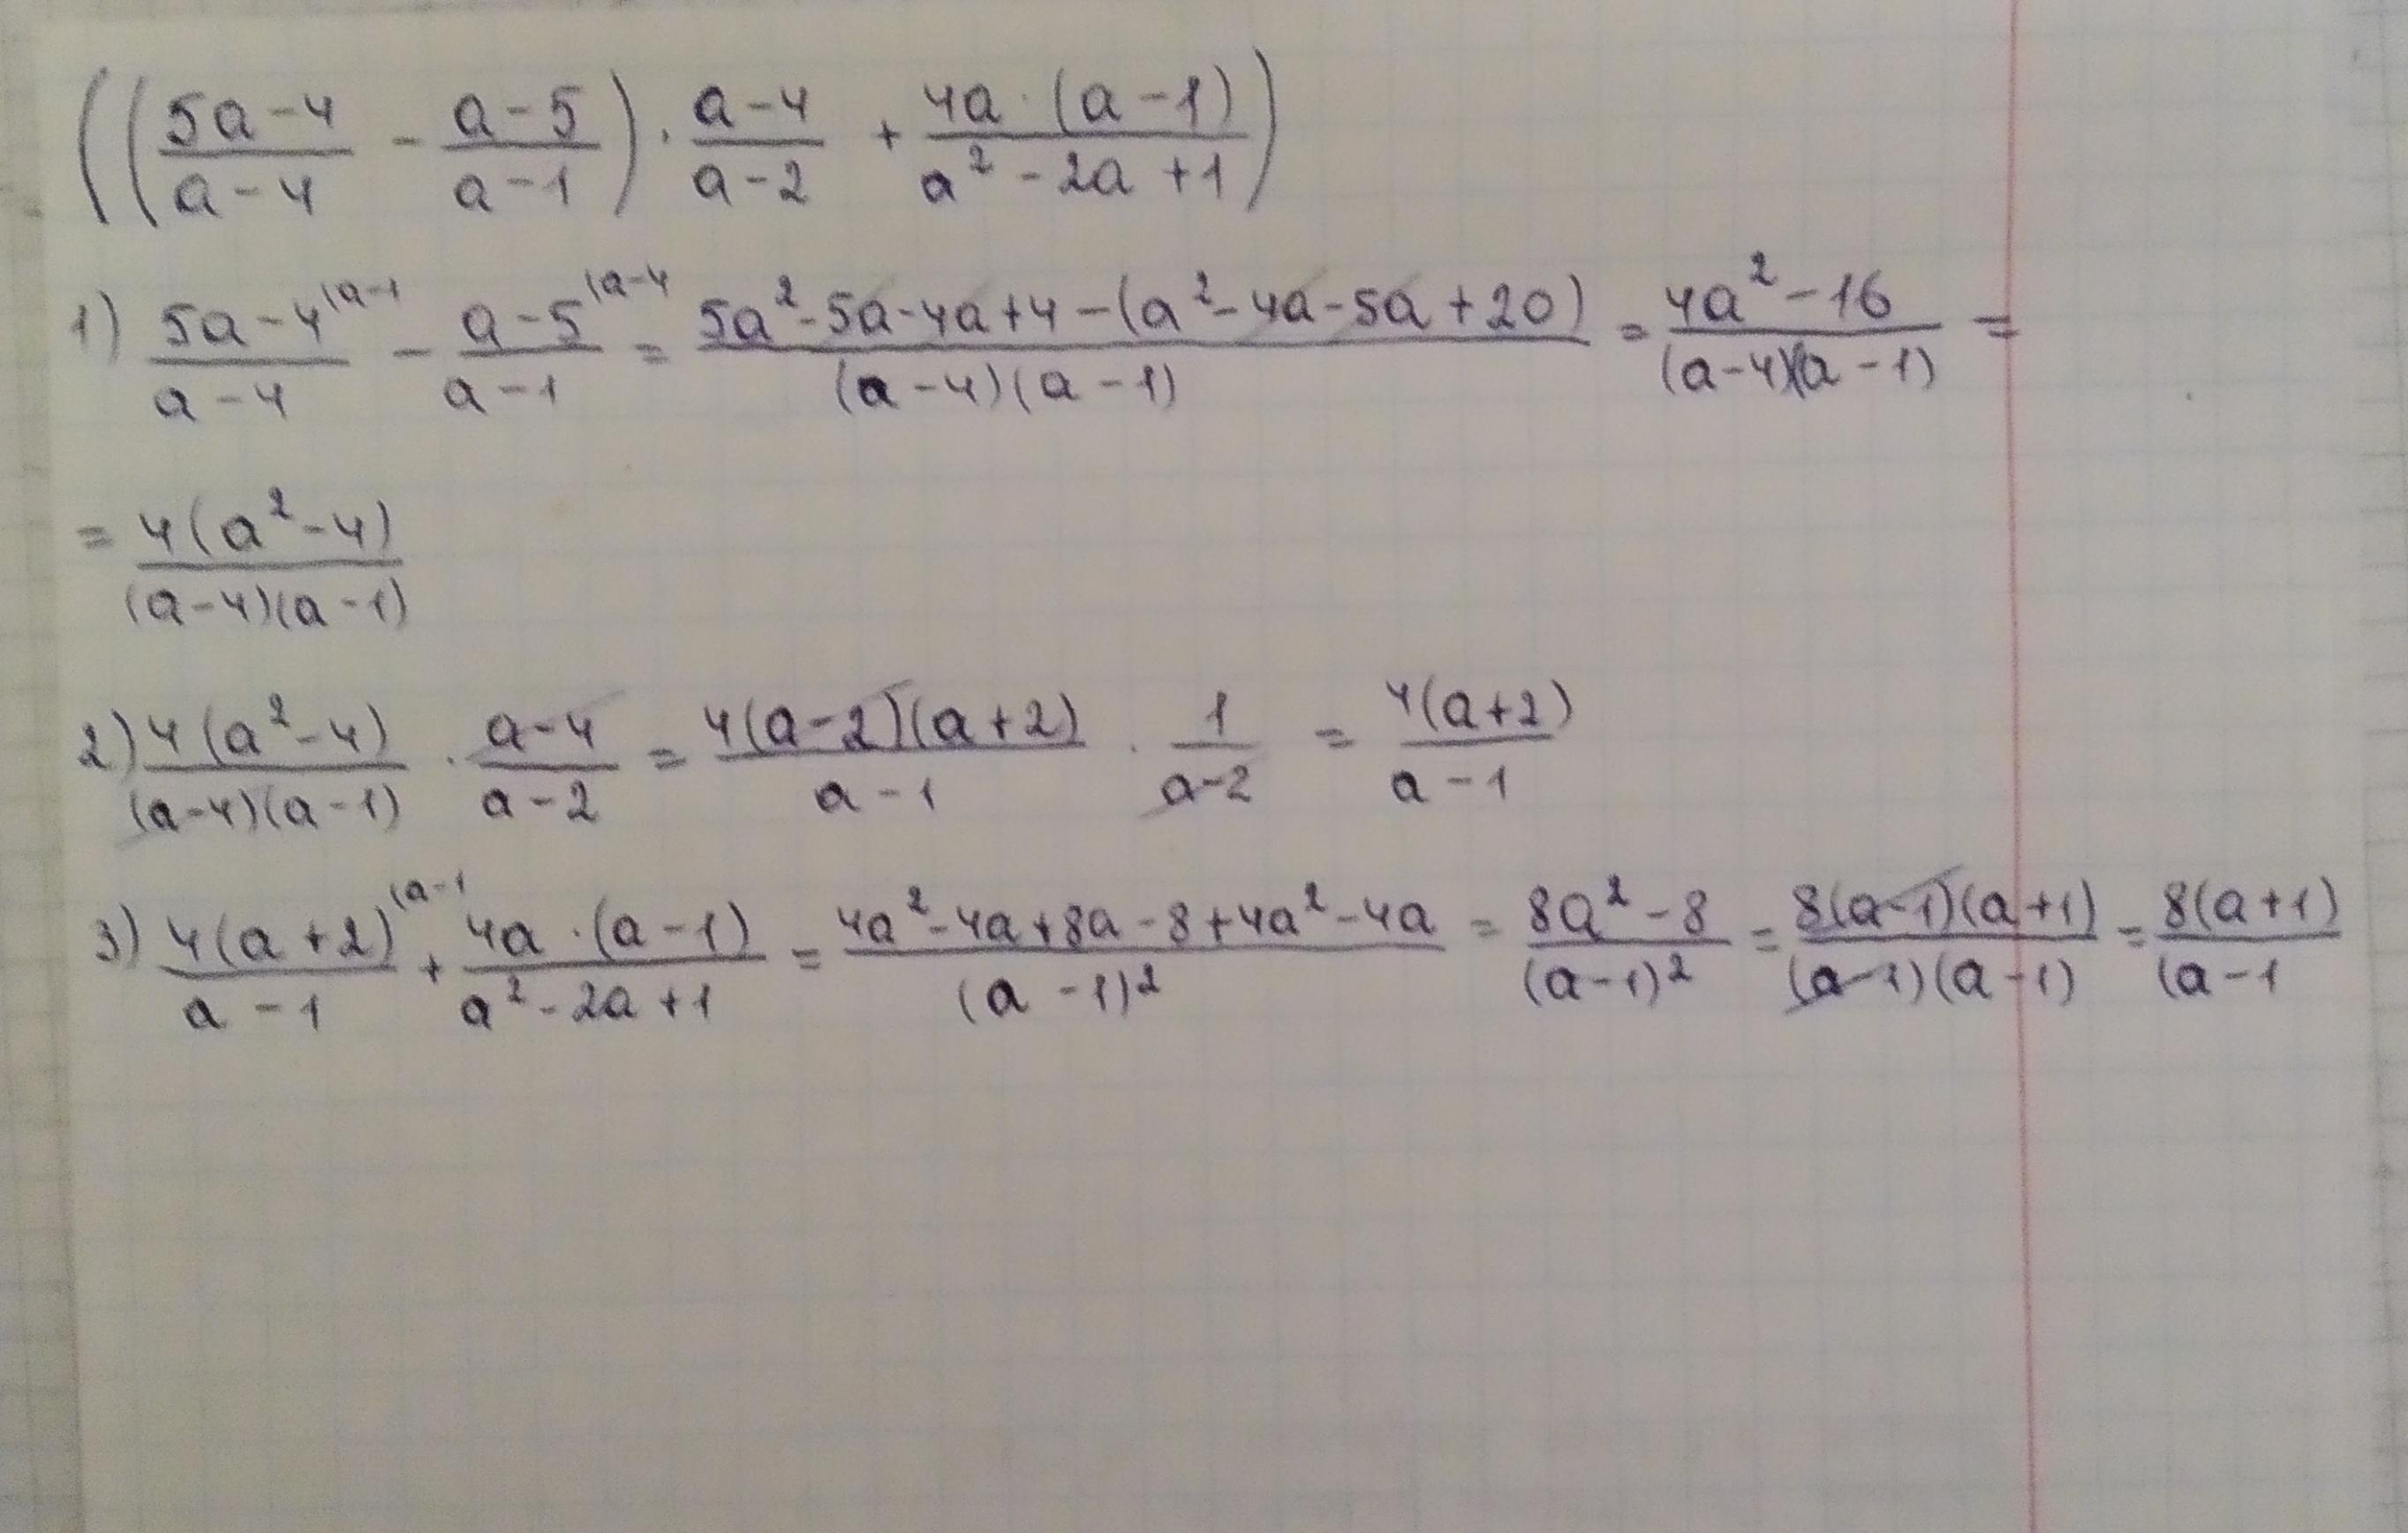 ((5a-4)/(a-4) - (a-5)/(a-1)) · (a-4)/(a-2) + (4a·(a-1))/(a²-2a+1))
1) (5a-4)/(a-4) ^(a-1 - (a-5)/(a-1) ^(a-4 = (5a²-5a-4a+4-(a²-4a-5a+20))/((a-4)(a-1)) = (4a²-16)/((a-4)(a-1)) =
= (4(a²-4))/((a-4)(a-1))
2) (4(a²-4))/((a-4)(a-1)) · (a-4)/(a-2) = (4(a-2)(a+2))/(a-1) · 1/(a-2) = (4(a+2))/(a-1)
3) (4(a+2))/(a-1) ^(a-1 + (4a·(a-1))/(a²-2a+1) = (4a²-4a+8a-8+4a²-4a)/((a-1)²) = (8a²-8)/((a-1)²) = (8(a-1)(a+1))/((a-1)(a-1)) = (8(a+1))/((a-1